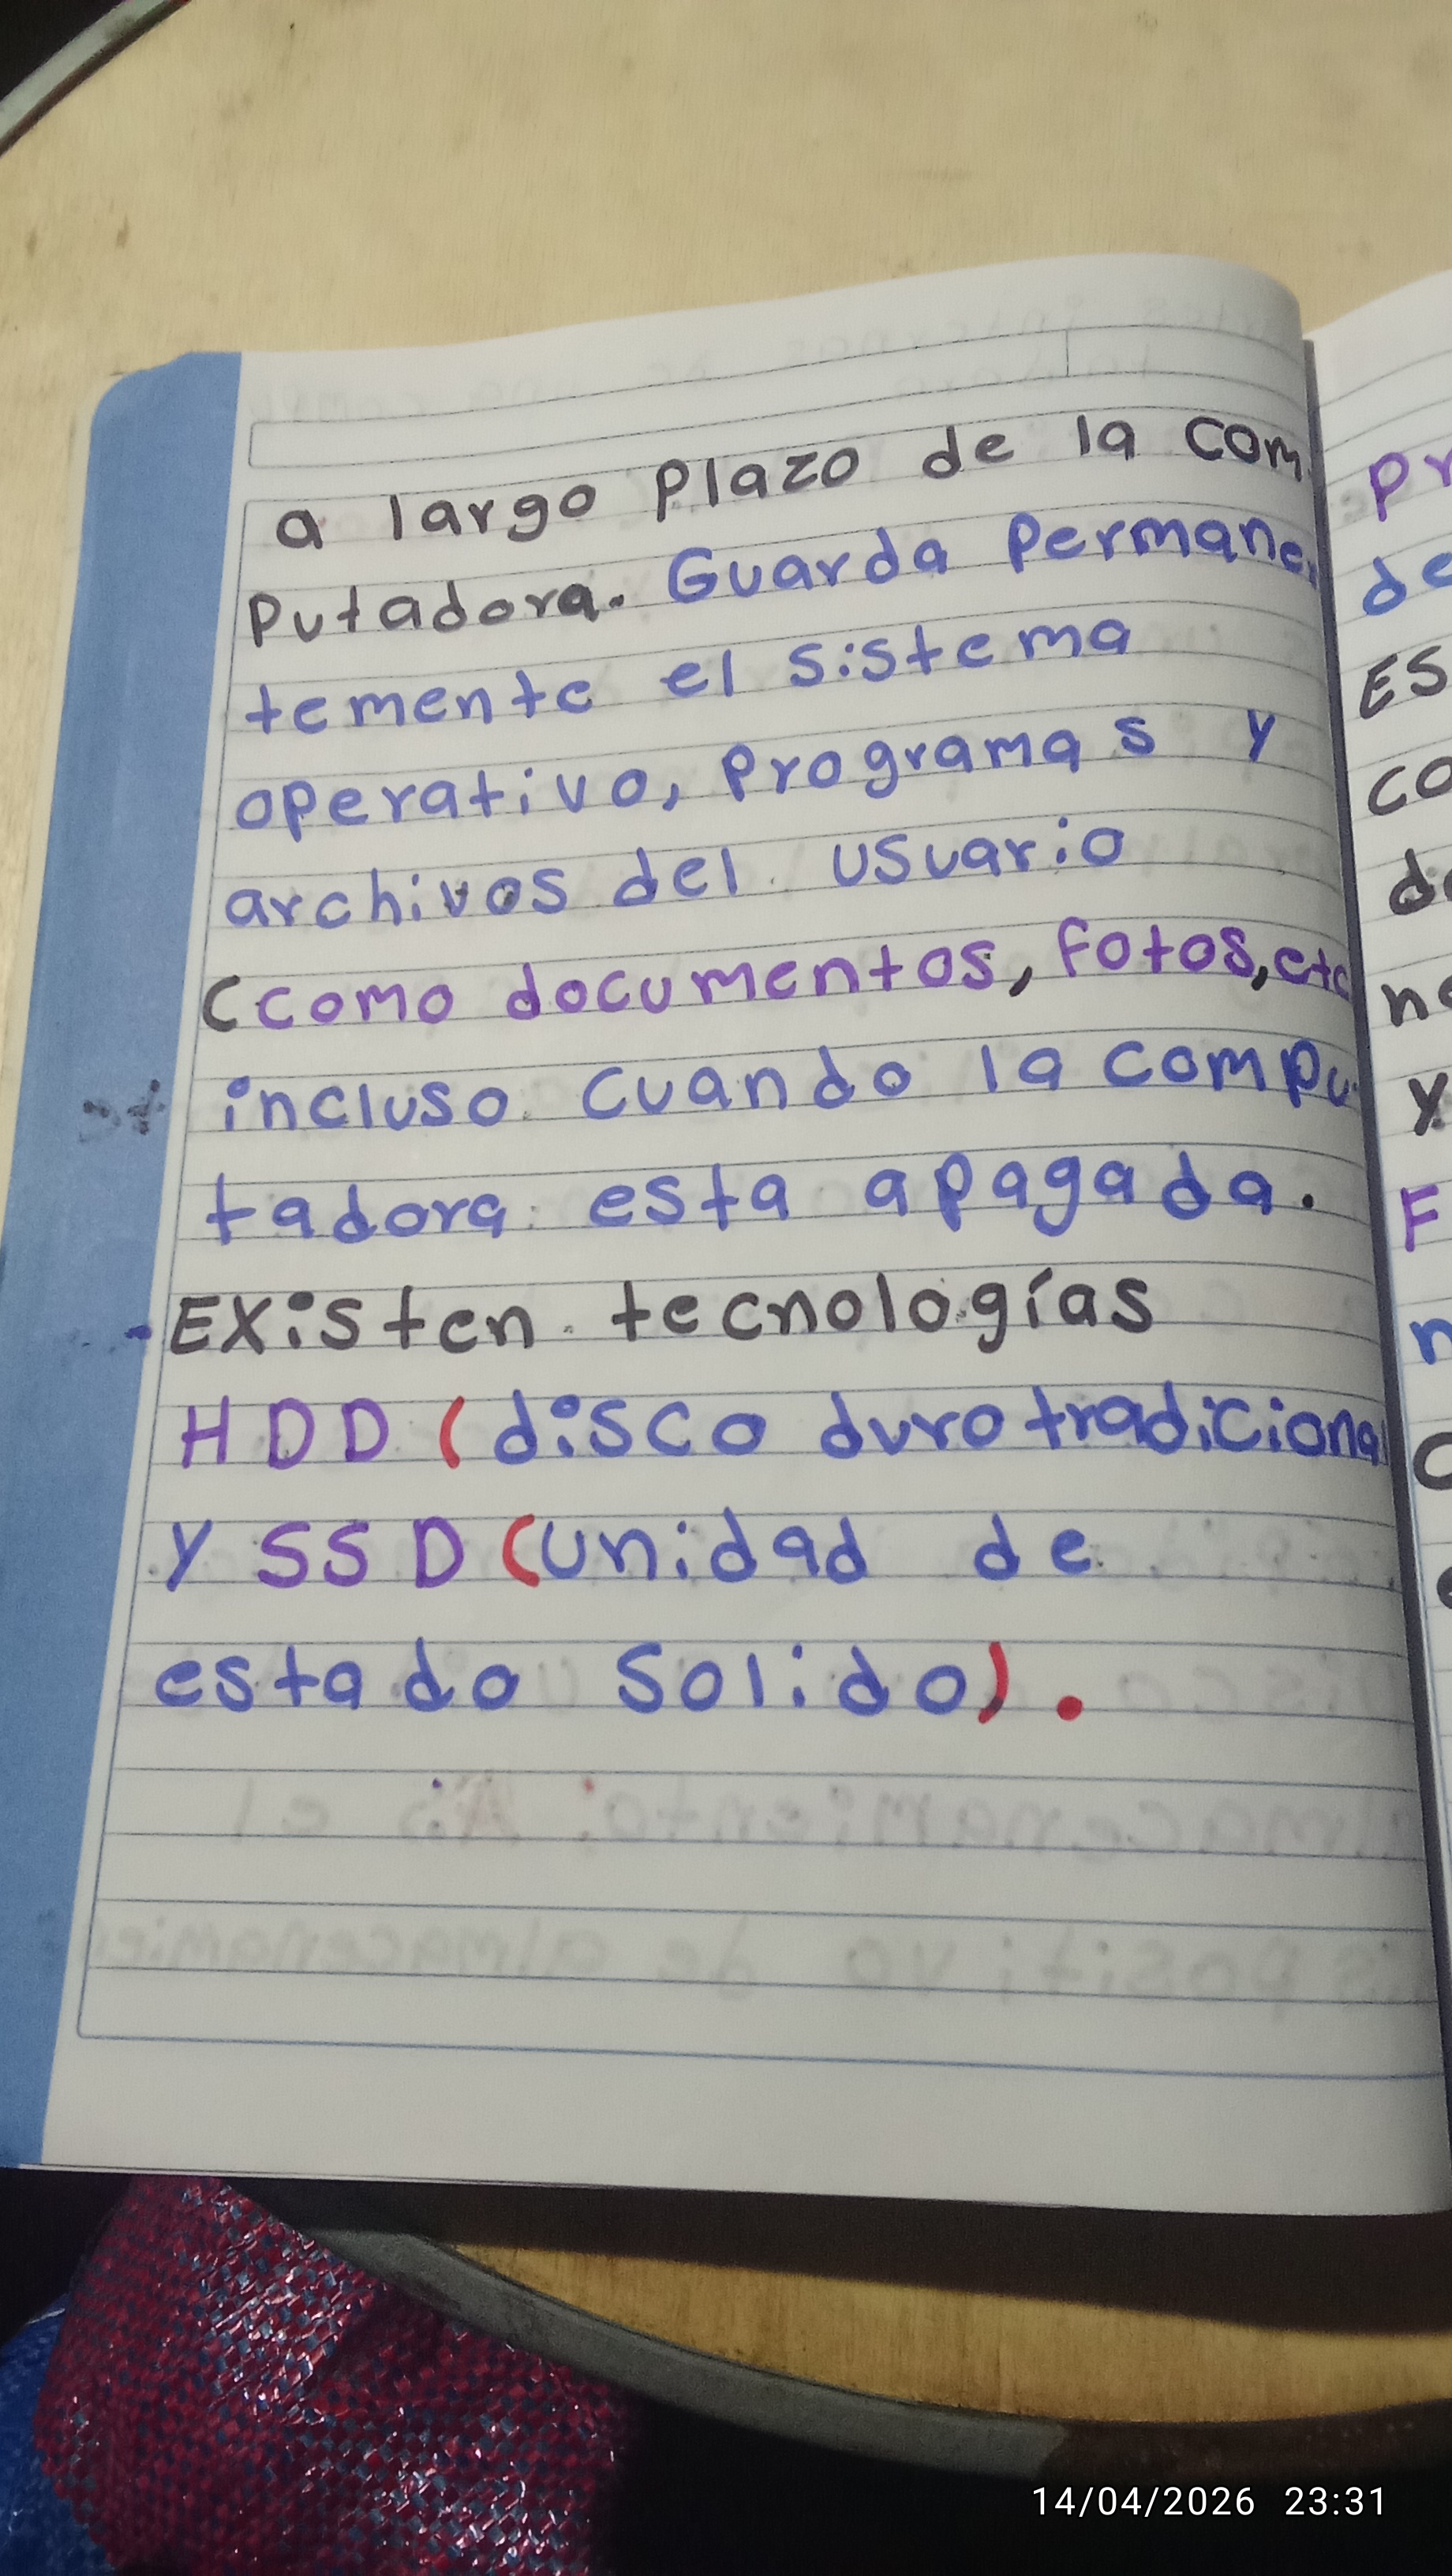 a largo Plazo de la com
Putadora. Guarda Permane
temente el sistema
operativo, Programas y
archivos del usuario
(como documentos, Fotos, etc
incluso cuando la compu
tadora esta apagada.
- Existen tecnologías
HDD (disco duro tradiciona
y SSD (unidad de
estado Solido).
Pr
de
ES
co
de
ne
y
F
n
14/04/2026 23:31